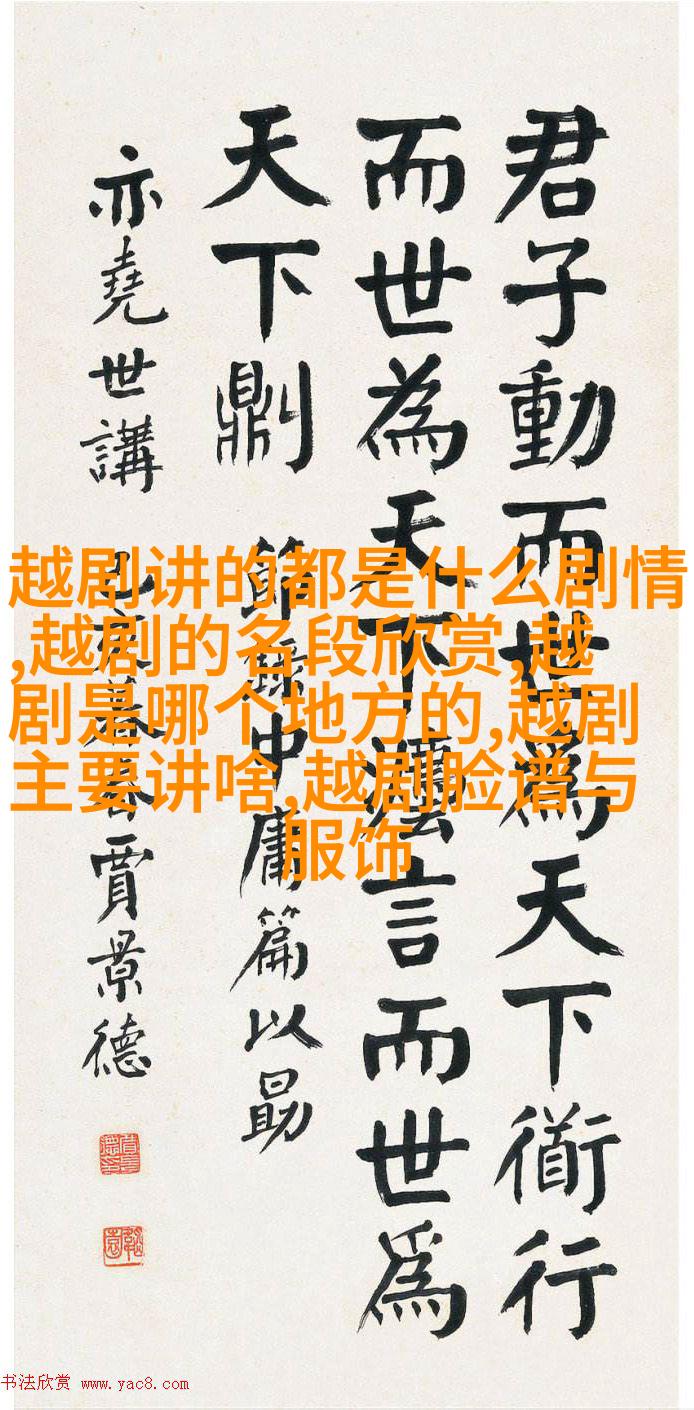 君子動而世爲天下衜行
而世為天下灋言而世爲
天下𠟭 節錄中庸篇以勗
亦堯世講 暮春賈景德
越剧讲的都是什么剧情
,越剧的名段欣赏,越
剧是哪个地方的,越剧
主要讲啥,越剧脸谱与
服饰
书法欣赏 www.yac8.com